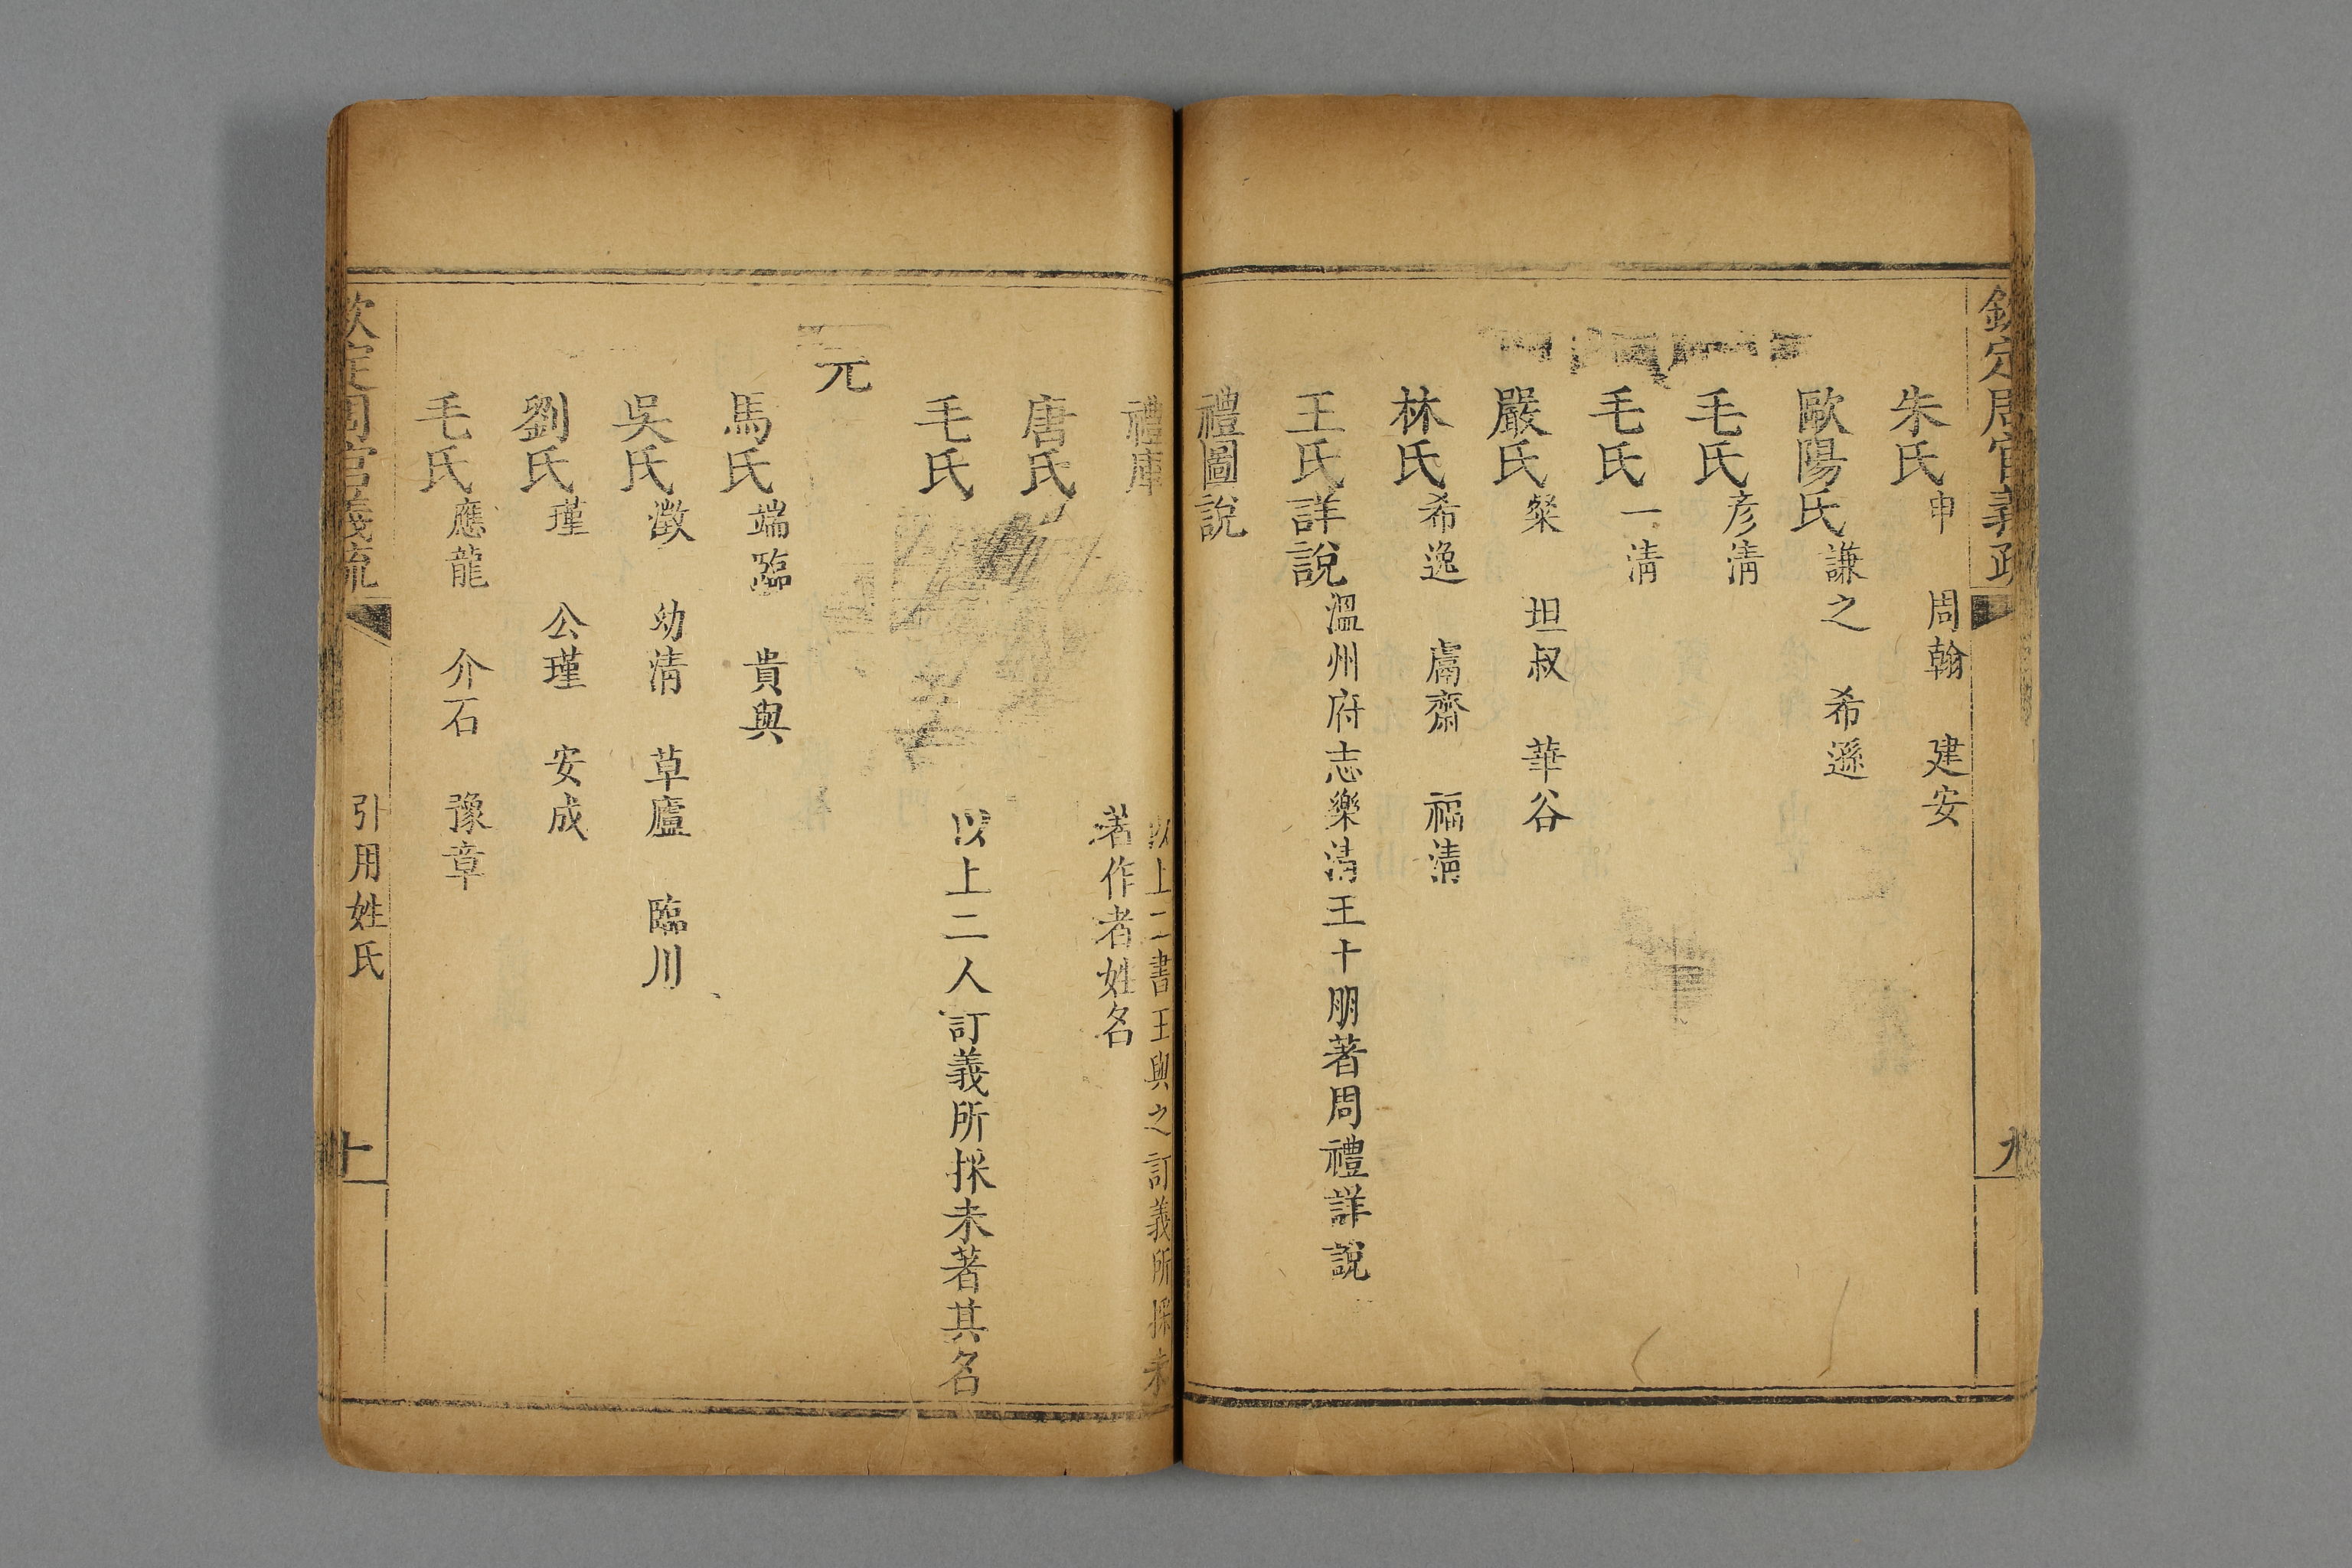 欽定周官義疏
九
朱氏申 周翰 建安
歐陽氏謙之 希遜
毛氏彥清
毛氏一清
嚴氏粲 坦叔 華谷
林氏希逸 鬳齋 福清
王氏詳說溫州府志樂清王十朋著周禮詳說
禮圖說
禮庫以上二書王與之訂義所採未
著作者姓名
唐氏
毛氏以上二人訂義所採未著其名
元
馬氏端臨 貴與
吳氏澂 幼清 草廬 臨川
劉氏瑾 公瑾 安成
毛氏應龍 介石 豫章
欽定周官義疏
引用姓氏
十